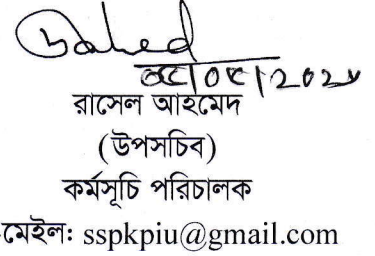 রাসেল আহমেদ
(উপসচিব)
কর্মসূচি পরিচালক
মেইল: sspkpiu@gmail.com